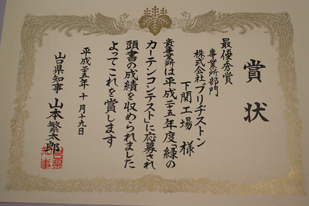 賞状
最優秀賞
事業所部門
株式会社ブリヂストン
下関工場 様
貴事業所は平成二十五年度「緑の
カーテンコンテスト」に応募され
頭書の成績を収められました
よってこれを賞します
平成二十五年十月十九日
山口県知事 山本繁太郎